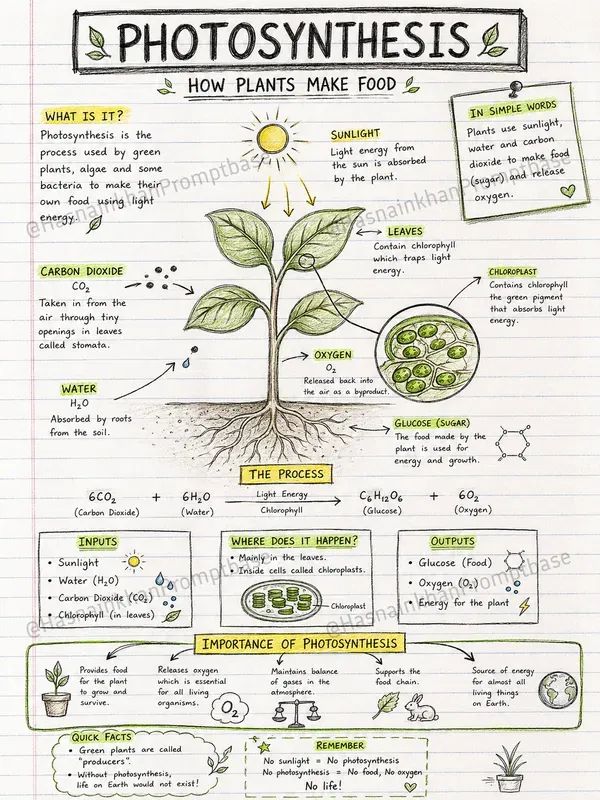 PHOTOSYNTHESIS
HOW PLANTS MAKE FOOD
WHAT IS IT?
Photosynthesis is the
process used by green
plants, algae and some
bacteria to make their
own food using light
energy.
SUNLIGHT
Light energy from
the sun is absorbed
by the plant.
IN SIMPLE WORDS
Plants use sunlight,
water and carbon
dioxide to make food
(sugar) and release
oxygen.
@HasnainkhanPromptbase
@HasnainkhanPromptbase
LEAVES
Contain chlorophyll
which traps light
energy.
CARBON DIOXIDE
CO₂
Taken in from the
air through tiny
openings in leaves
called stomata.
CHLOROPLAST
Contains chlorophyll
the green pigment
that absorbs light
energy.
OXYGEN
O₂
Released back into
the air as a byproduct.
WATER
H₂O
Absorbed by roots
from the soil.
GLUCOSE (SUGAR)
The food made by the
plant is used for
energy and growth.
THE PROCESS
6CO₂ + 6H₂O Light Energy → C₆H₁₂O₆ + 6O₂
(Carbon Dioxide) (Water) Chlorophyll (Glucose) (Oxygen)
INPUTS
• Sunlight
• Water (H₂O)
• Carbon Dioxide (CO₂)
• Chlorophyll (in leaves)
WHERE DOES IT HAPPEN?
• Mainly in the leaves.
• Inside cells called chloroplasts.
Chloroplast
OUTPUTS
• Glucose (Food)
• Oxygen (O₂)
• Energy for the plant
@HasnainkhanPromptbase
@HasnainkhanPromptbase
IMPORTANCE OF PHOTOSYNTHESIS
Provides food
for the plant
to grow and
survive.
Releases oxygen
which is essential
for all living
organisms.
O₂
Maintains balance
of gases in the
atmosphere.
Supports the
food chain.
Source of energy
for almost all
living things
on Earth.
QUICK FACTS
• Green plants are called
"producers".
• Without photosynthesis,
life on Earth would not exist!
REMEMBER
No sunlight = No photosynthesis
No photosynthesis = No food, No oxygen
No life!